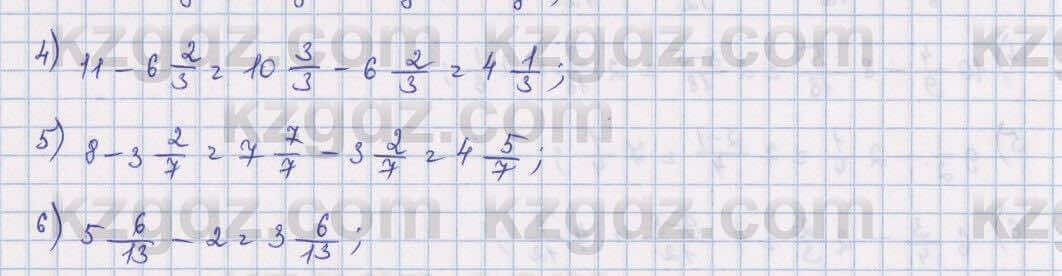 kzgdz.com kzgdz.com kz
4) 11 - 6 2/3 = 10 3/3 - 6 2/3 = 4 1/3 ;
kzgdz.com kzgdz
5) 8 - 3 2/7 = 7 7/7 - 3 2/7 = 4 5/7 ;
kzgdz.com kzgdz.com kz
6) 5 6/13 - 2 = 3 6/13 ;